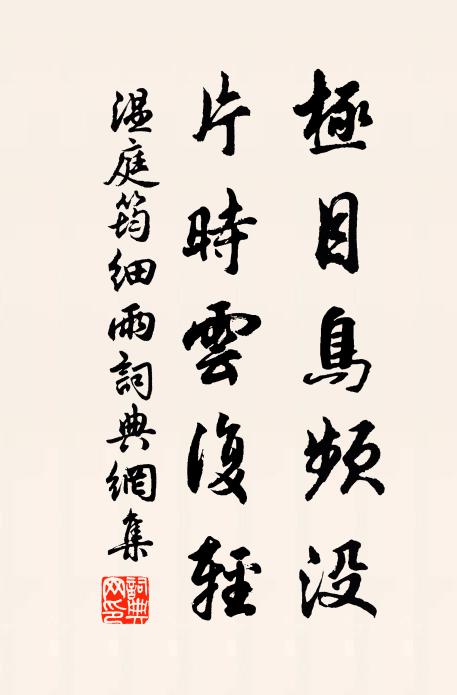 極目鳥頻没
片時雲復輕
温庭筠細雨詞典網集
詞典網印